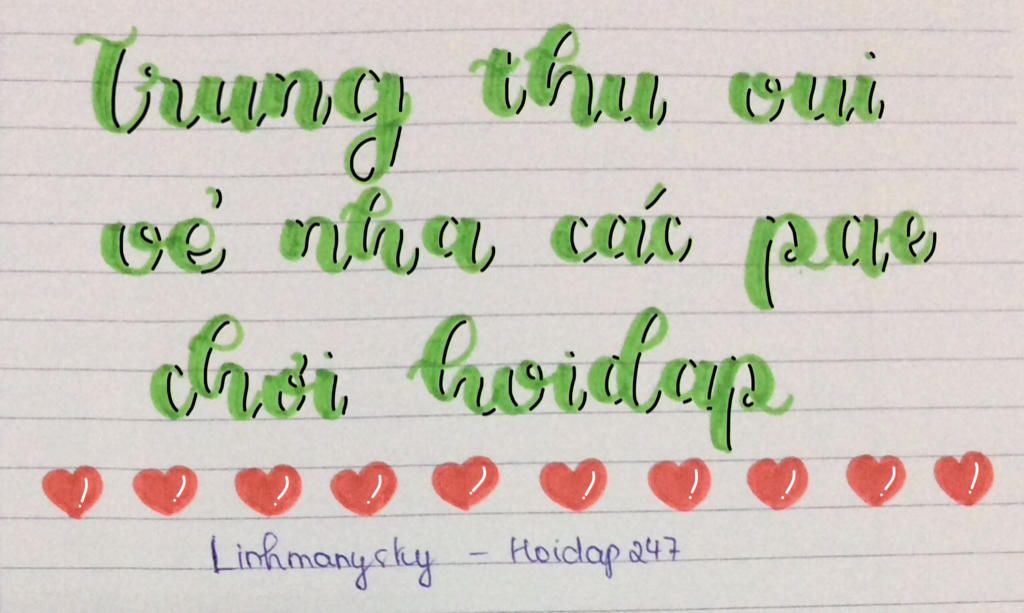 Trung thu vui
vẻ nha các pae
chơi hoidap
Linhmanysky - Hoidap247